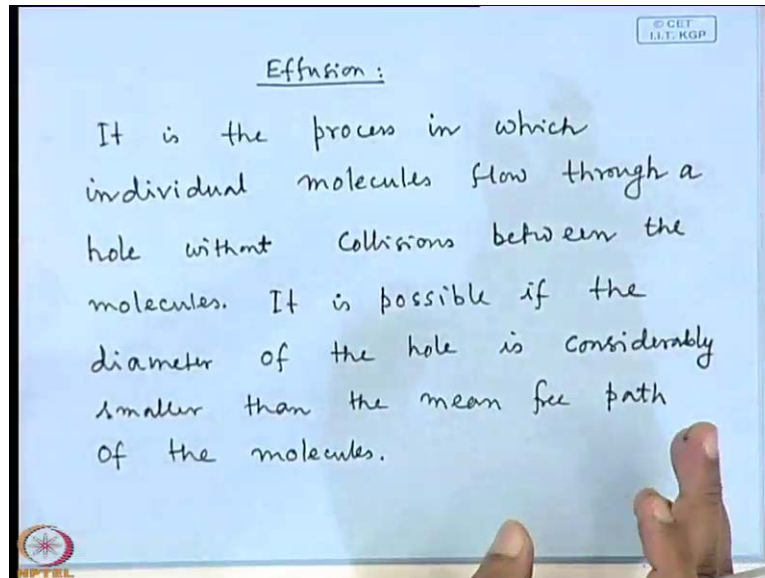 © CET
I.I.T. KGP
Effusion:
It is the process in which
individual molecules flow through a
hole without Collisions between the
molecules. It is possible if the
diameter of the hole is considerably
smaller than the mean free path
of the molecules.
NPTEL